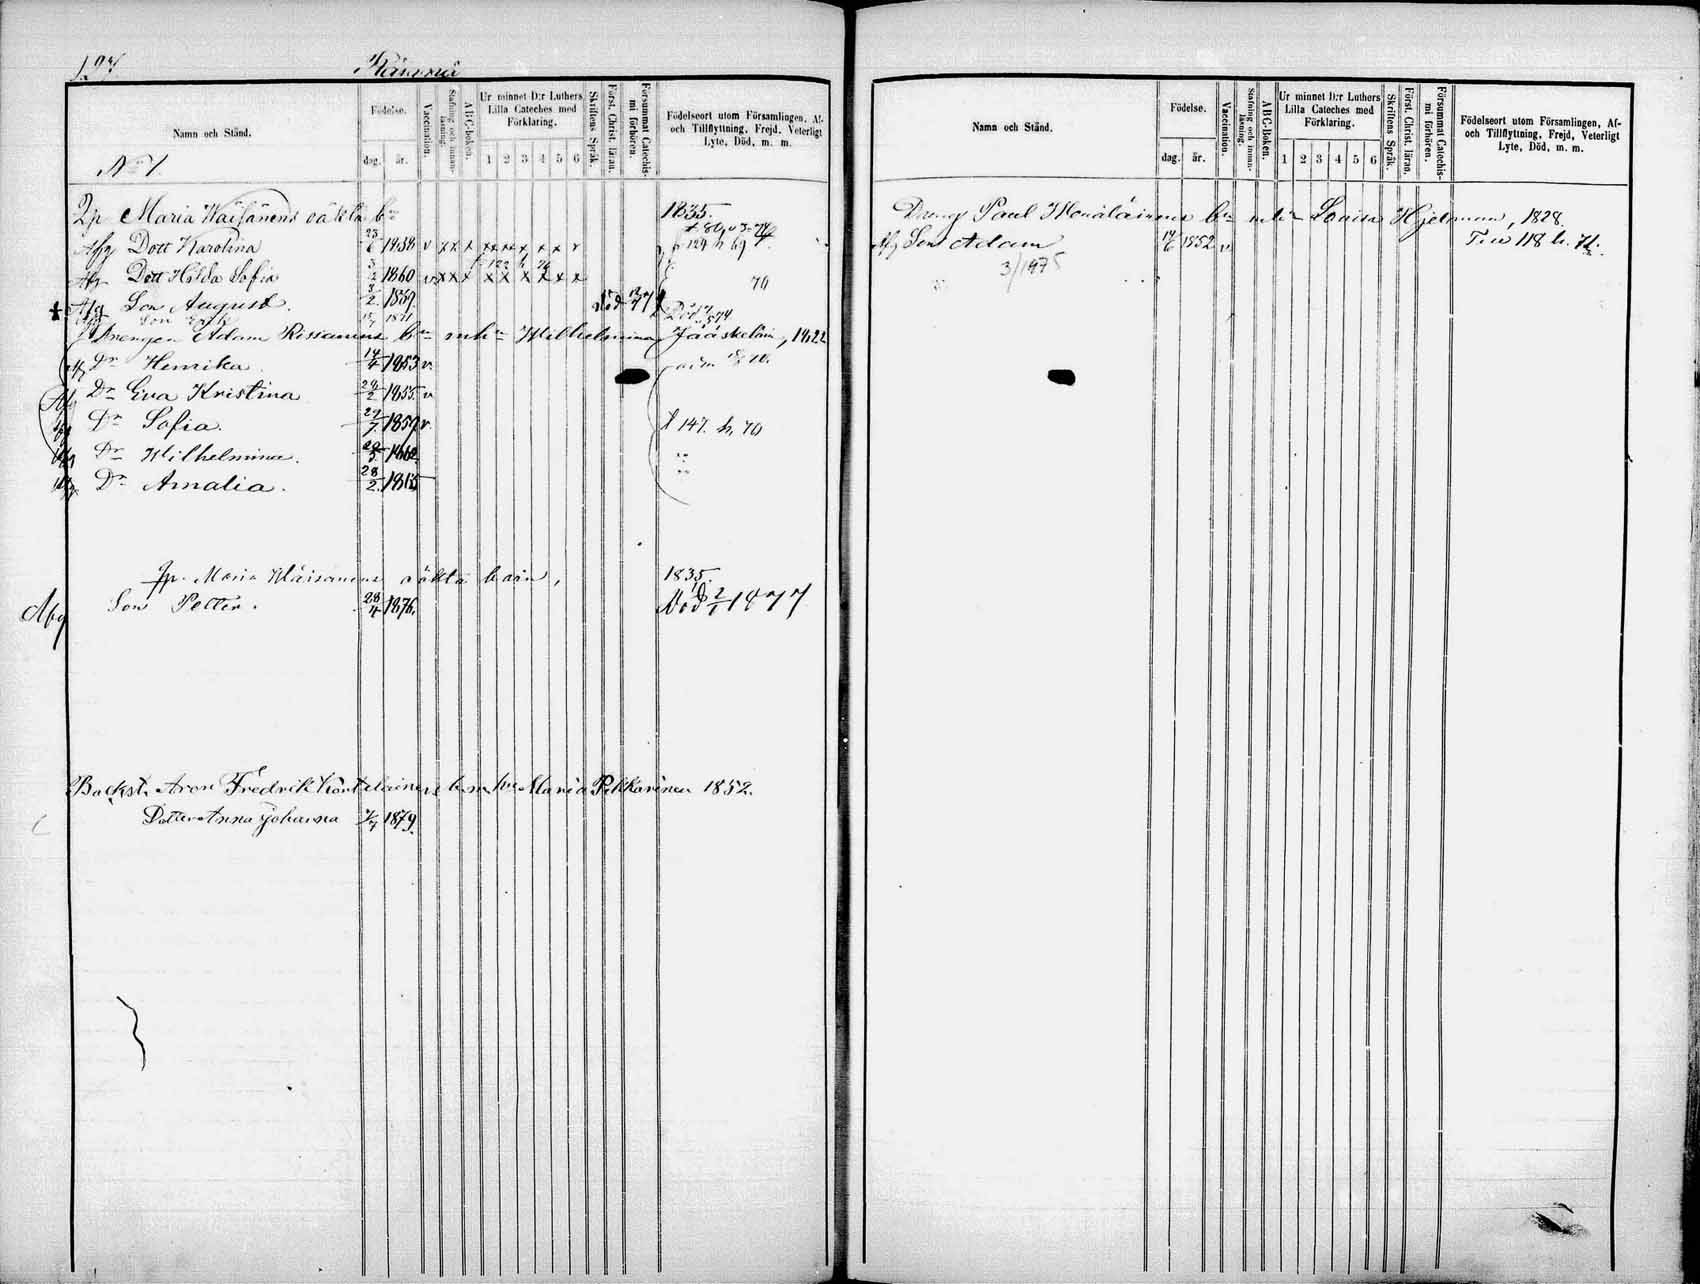 127 Kämnä
Namn och Stånd.
Födelse.
dag. år.
Vaccination.
Stafning och innanläsning.
ABC-boken.
Ur minnet D:r Luthers Lilla Cateches med Förklaring.
1 2 3 4 5 6
Skriftens Språk.
Först. Christ. läran.
Försummat Catechismi förhören.
Födelseort utom Församlingen, Af- och Tillflyttning, Frejd, Veterligt Lyte, Död, m. m.
No 1.
Qp Maria Wäisänens oäkta bn 1835.
Afg Dott Karolina 23/6 1858 v x x x x x x x x v p 124 h 69
Afg Dott Hilda Sofia 1860 v x x x x x x x x x 70
Afg Son August. 3/2 1859. död 77
Son Erik 1871 Död 74
Drengen Adam Rissanens bn m hu Wilhelmina Jääskeläin, 1822
Afg Dr Henrika. 14/4 1853 v.
Afg Dr Eva Kristina 24/2 1855. v
Afg Dr Sofia. 29/7. 1859 v. f 147. h. 70
Afg Dr Wilhelmina. 1862.
Afg Dr Amalia. 28/2. 1865
Qp. Maria Wäisänens oäkta barn, 1835.
Afg Son Petter. 28/4 1876. Död 2/1 1877
Backst. Aron Fredrik Kontilainens b. m. hu Maria Pikkarinen 1852.
Dotter Anna Johanna 7/7 1879.
Namn och Stånd.
Födelse.
dag. år.
Vaccination.
Stafning och innanläsning.
ABC-boken.
Ur minnet D:r Luthers Lilla Cateches med Förklaring.
1 2 3 4 5 6
Skriftens Språk.
Först. Christ. läran.
Försummat Catechismi förhören.
Födelseort utom Församlingen, Af- och Tillflyttning, Frejd, Veterligt Lyte, Död, m. m.
Dreng Paul Monaläinens bn m hu Lovisa Hjelman, 1828.
Afg Son Adam 14/6 1852 v 118 h. 71.
3/1975